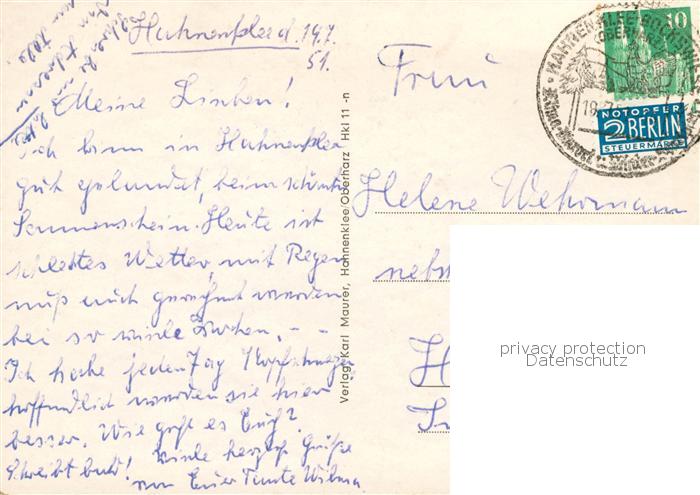 Hahnenklee d. 19.7.
51.
Meine Lieben!
Ich bin in Hahnenklee
gut gelandet, beim schönsten
Sonnenschein. Heute ist
schlechtes Wetter, mit Regen
muß auch gerechnet werden
bei so viele Wochen. - -
Ich habe jeden Tag Kopfschmerzen
hoffendlich werden sie hier
besser. Wie geht es Euch?
Schreibt bald! viele herzliche Grüße
von Euer Tante Wilma
Verlag: Karl Maurer, Hahnenklee/Oberharz Hkl 11 -n
Frau
Helene Wehrmann
10
HAHNENKLEE-BOCKSWIESE
OBERHARZ
NOTOPFER
2 BERLIN
STEUERMARKE
privacy protection
Datenschutz